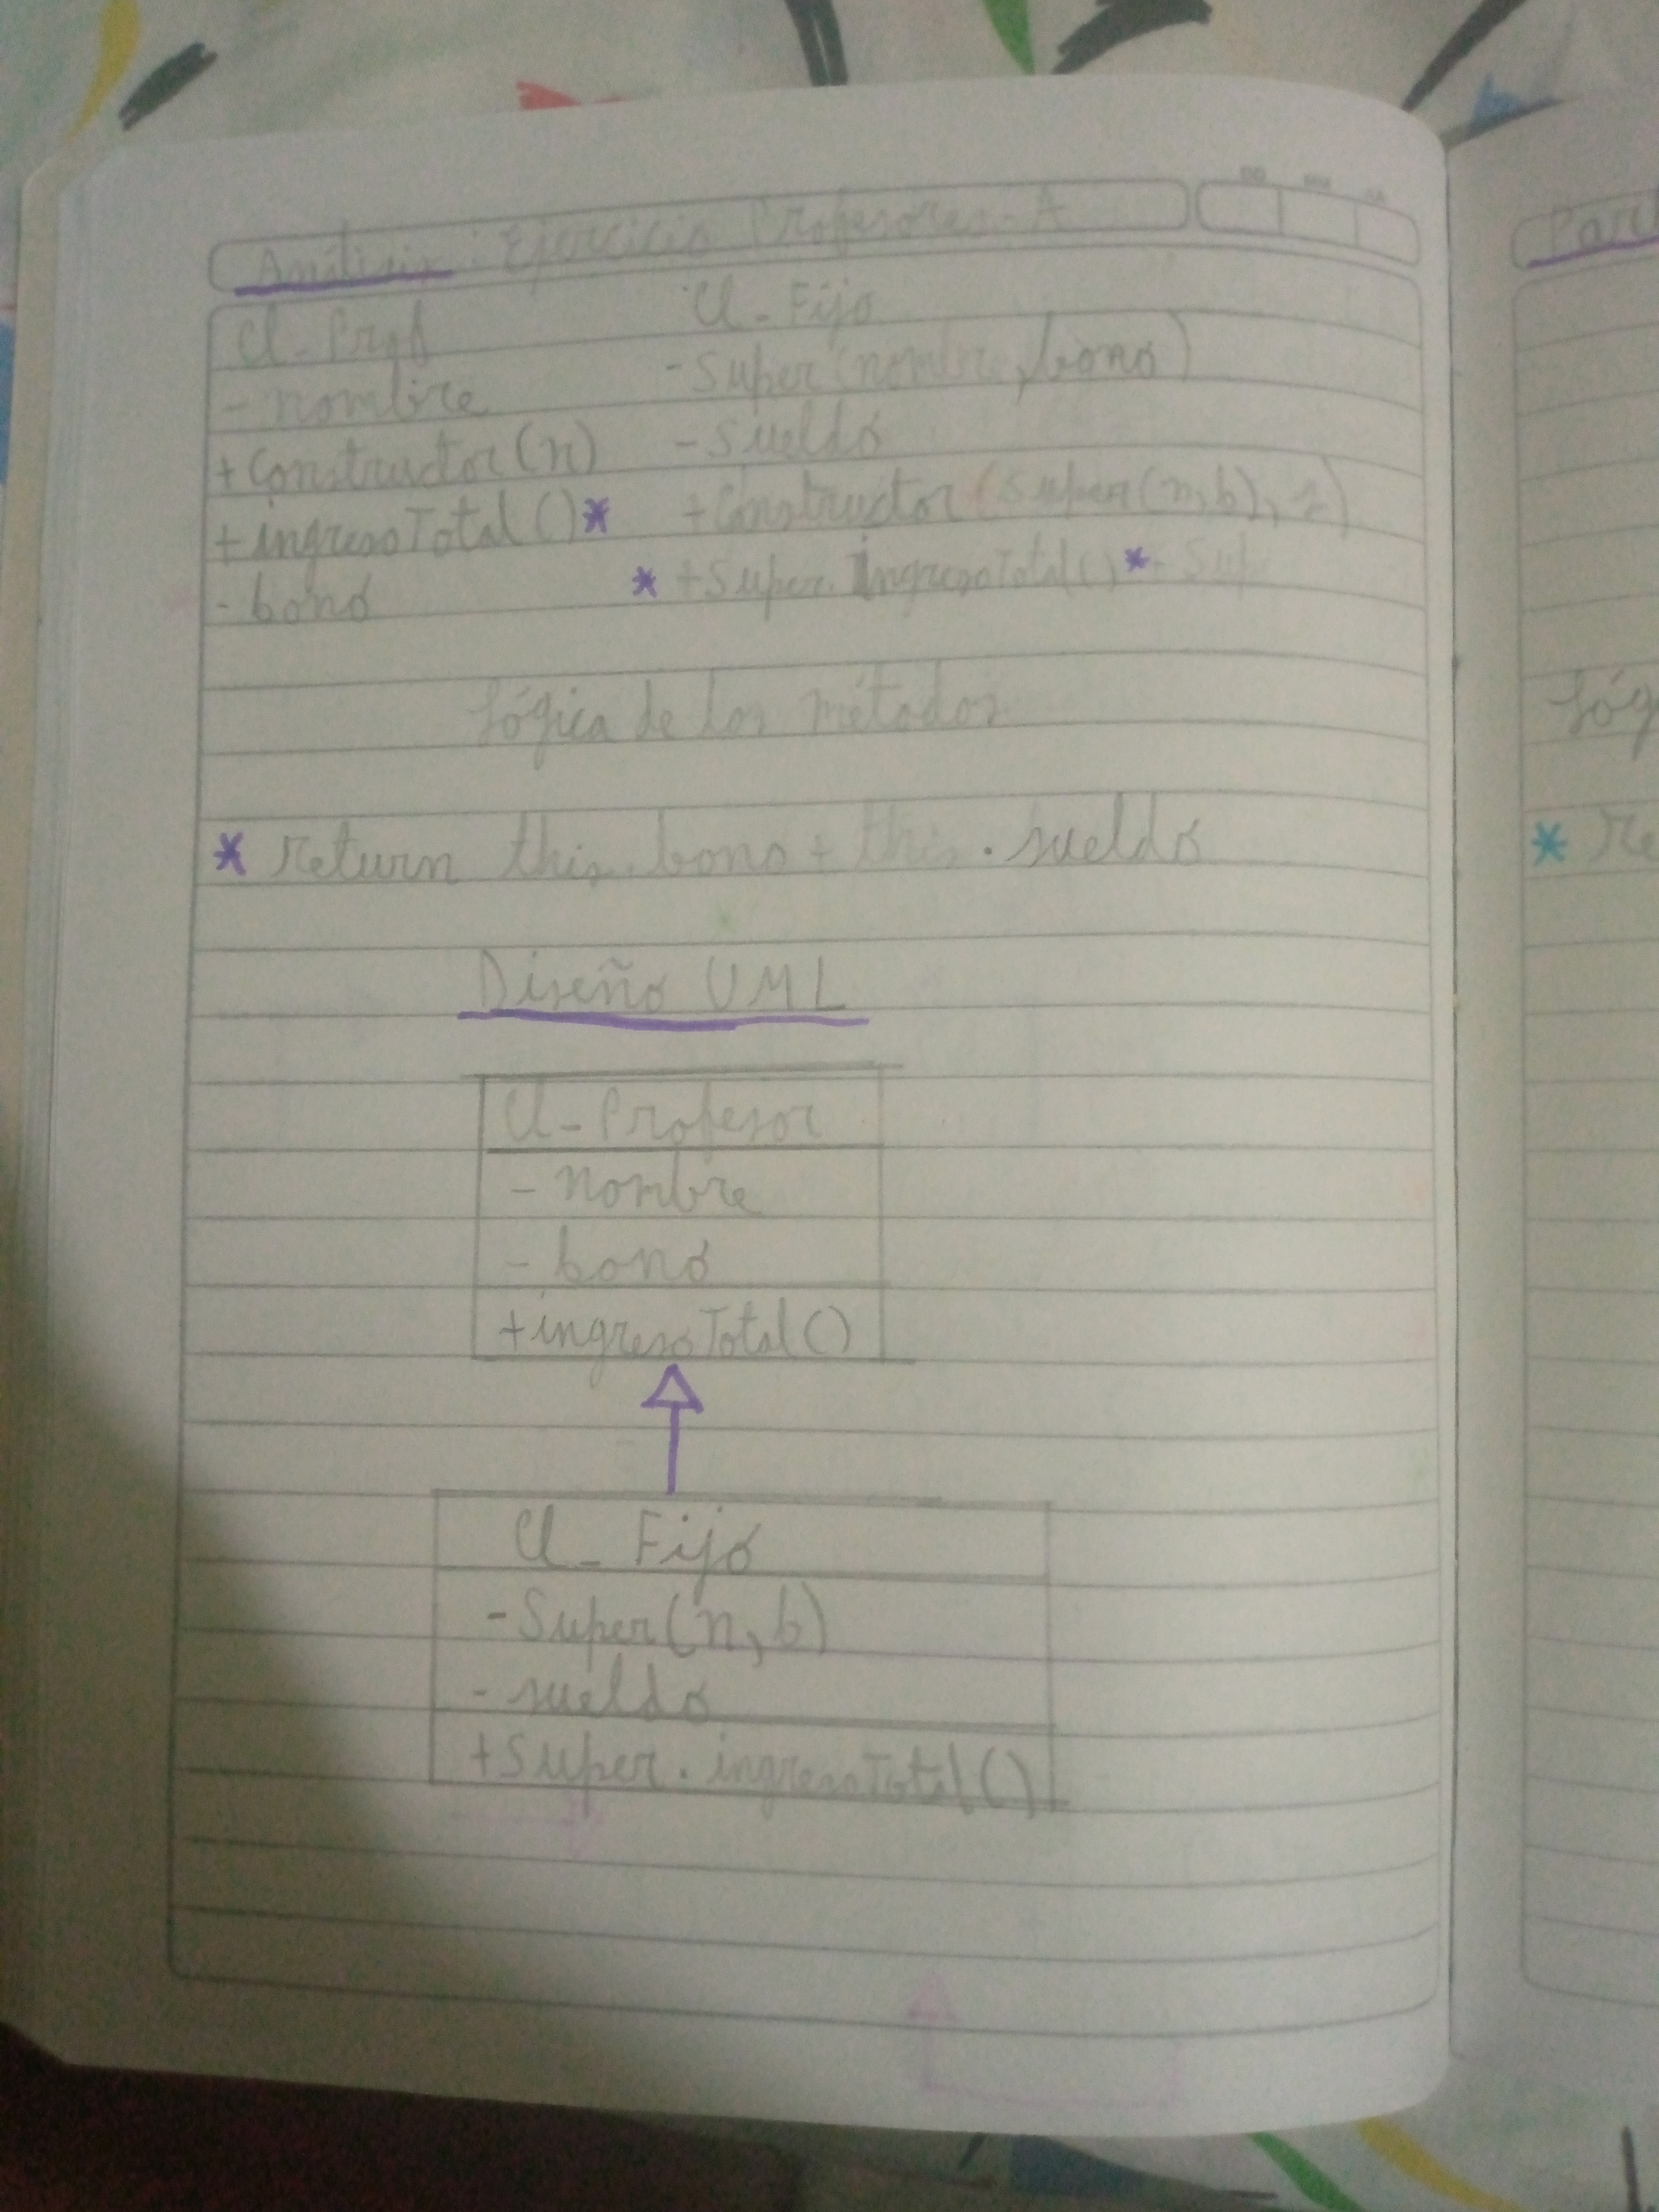 Análisis: Ejercicio Profesores-A
Cl-Prof
- nombre
+ Constructor(n)
+ ingresoTotal()*
- bono
Cl-Fijo
- Super(nombre, bono)
- Sueldo
+ Constructor(super(n,b), s)
* + Super.IngresoTotal()*
Lógica de los métodos
* return this.bono + this.sueldo
Diseño UML
Cl-Profesor
- nombre
- bono
+ ingresoTotal()
Cl-Fijo
- Super(n,b)
- sueldo
+ Super.ingresoTotal()
* Re